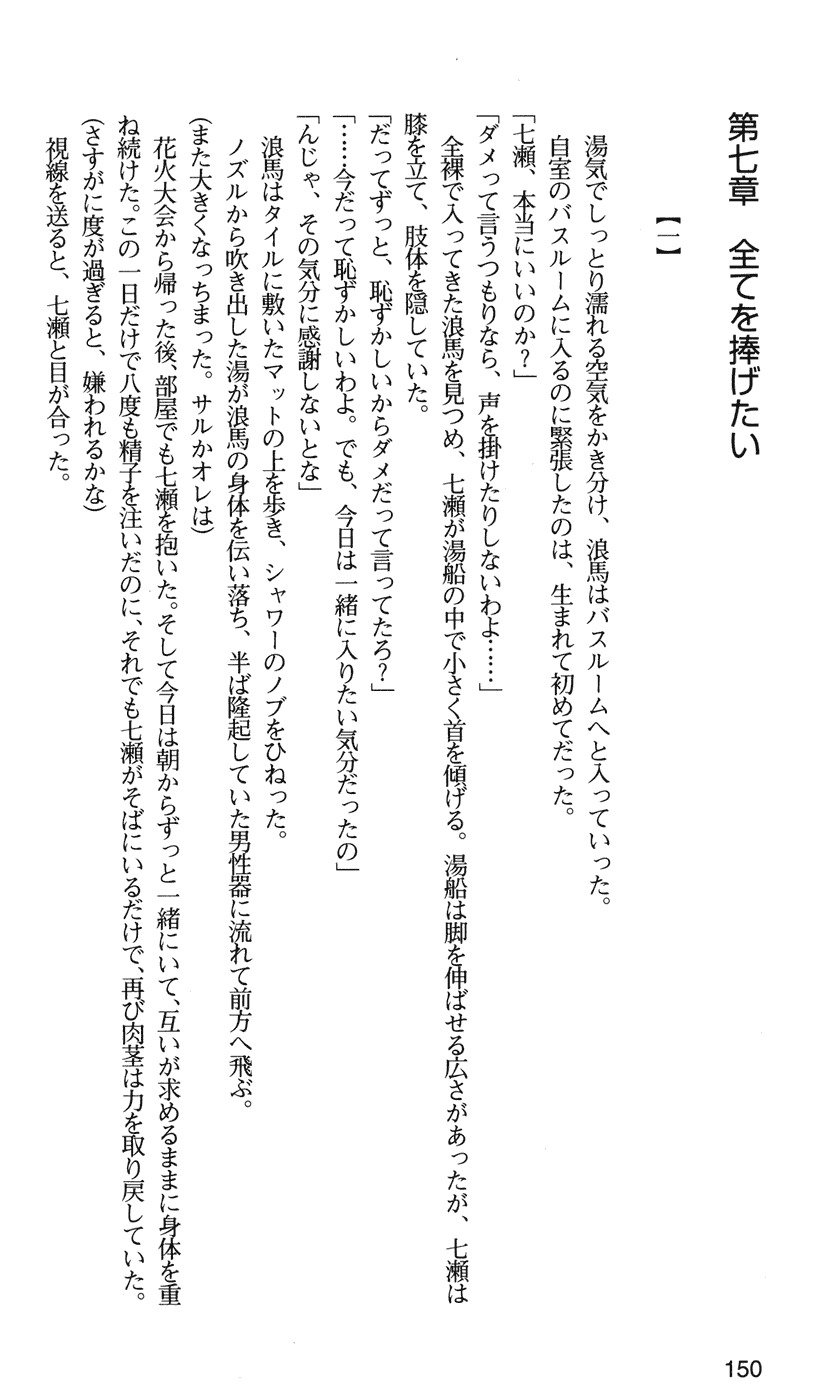 第七章　全てを捧げたい
【一】
湯気でしっとり濡れる空気をかき分け、浪馬はバスルームへと入っていった。
自室のバスルームに入るのに緊張したのは、生まれて初めてだった。
「七瀬、本当にいいのか？」
「ダメって言うつもりなら、声を掛けたりしないわよ……」
全裸で入ってきた浪馬を見つめ、七瀬が湯船の中で小さく首を傾げる。湯船は脚を伸ばせる広さがあったが、七瀬は
膝を立て、肢体を隠していた。
「だってずっと、恥ずかしいからダメだって言ってたろ？」
「……今だって恥ずかしいわよ。でも、今日は一緒に入りたい気分だったの」
「んじゃ、その気分に感謝しないとな」
浪馬はタイルに敷いたマットの上を歩き、シャワーのノブをひねった。
ノズルから吹き出した湯が浪馬の身体を伝い落ち、半ば隆起していた男性器に流れて前方へ飛ぶ。
(また大きくなっちまった。サルかオレは)
花火大会から帰った後、部屋でも七瀬を抱いた。そして今日は朝からずっと一緒にいて、互いが求めるままに身体を重
ね続けた。この一日だけで八度も精子を注いだのに、それでも七瀬がそばにいるだけで、再び肉茎は力を取り戻していた。
(さすがに度が過ぎると、嫌われるかな)
視線を送ると、七瀬と目が合った。
150